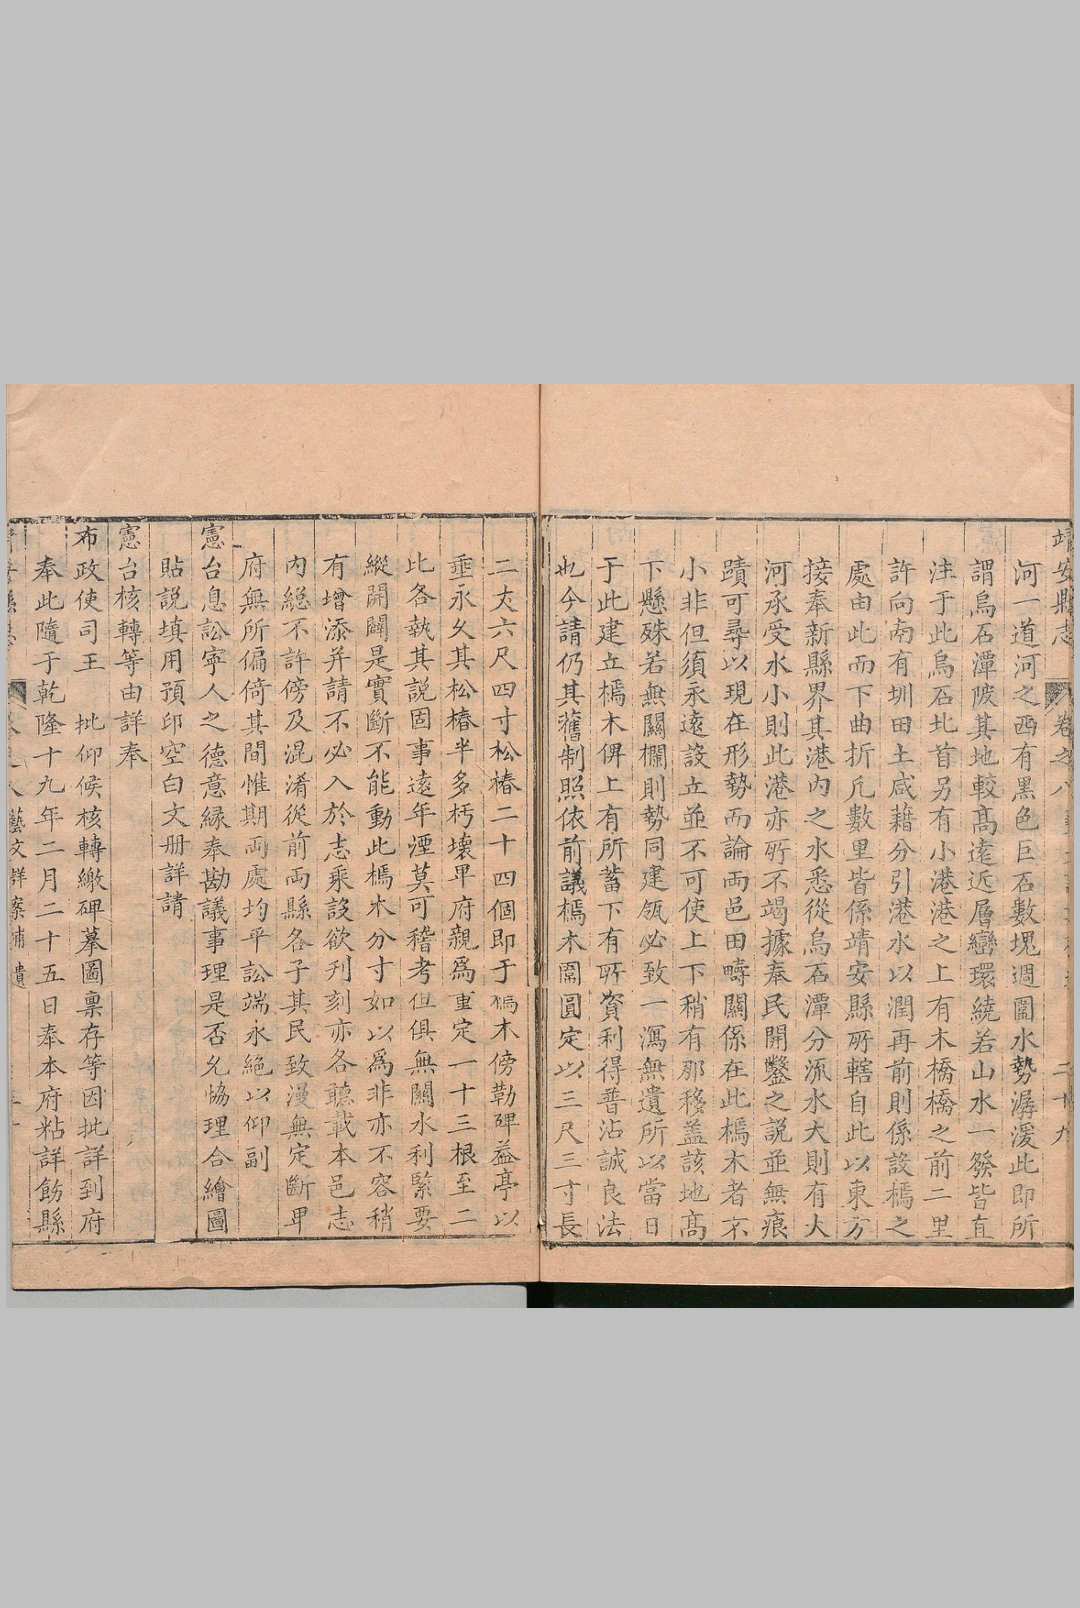 靖安縣志 卷之八 二十九
河一道河之西有黑色巨石數塊週圍水勢潺湲此即所
謂烏石潭陂其地較高遠近層巒環繞若山水一發皆直
注于此烏石北首另有小港港之上有木橋橋之前二里
許向南有圳田土咸藉分引港水以潤再前則係設槗之
處由此而下曲折凡數里皆係靖安縣所轄自此以東方
接奉新縣界其港內之水悉從烏石潭分流水大則有大
河承受水小則此港亦所不竭據奉民開鑿之說並無痕
蹟可尋以現在形勢而論両邑田疇關係在此槗木者不
小非但須永遠設立並不可使上下稍有那移蓋該地高
下懸殊若無關欄則勢同建瓴必致一瀉無遺所以當日
于此建立槗木俾上有所蓄下有所資利得普沾誠良法
也今請仍其舊制照依前議槗木圍圓定以三尺三寸長
二丈六尺四寸松樁二十四個即于槗木傍勒碑益亭以
垂永久其松樁半多朽壞卑府親爲重定一十三根至二
比各執其說固事遠年湮莫可稽考但俱無關水利緊要
縱開闢是實斷不能動此槗木分寸如以爲非亦不容稍
有增添并請不必入於志乘設欲刋刻亦各聽載本邑志
內總不許傍及混淆從前両縣各子其民致漫無定斷卑
府無所偏倚其間惟期両處均平訟端永絕以仰副
憲台息訟寧人之德意緣奉勘議事理是否允協理合繪圖
貼說填用預印空白文册詳請
憲台核轉等由詳奉
布政使司王 批仰候核轉繳碑摹圖禀存等因批詳到府
奉此隨于乾隆十九年二月二十五日奉本府粘詳飭縣
藝文詳案補遺